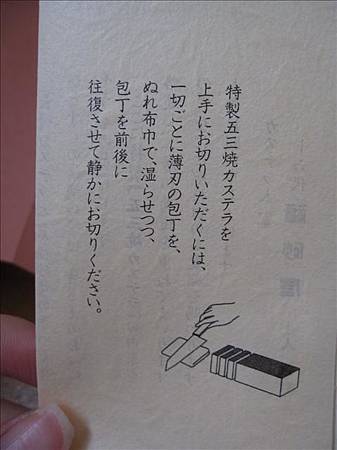 特製五三焼カステラを
上手にお切りいただくには、
一切ごとに薄刃の包丁を、
ぬれ布巾で、湿らせつつ、
包丁を前後に
往復させて静かにお切りください。